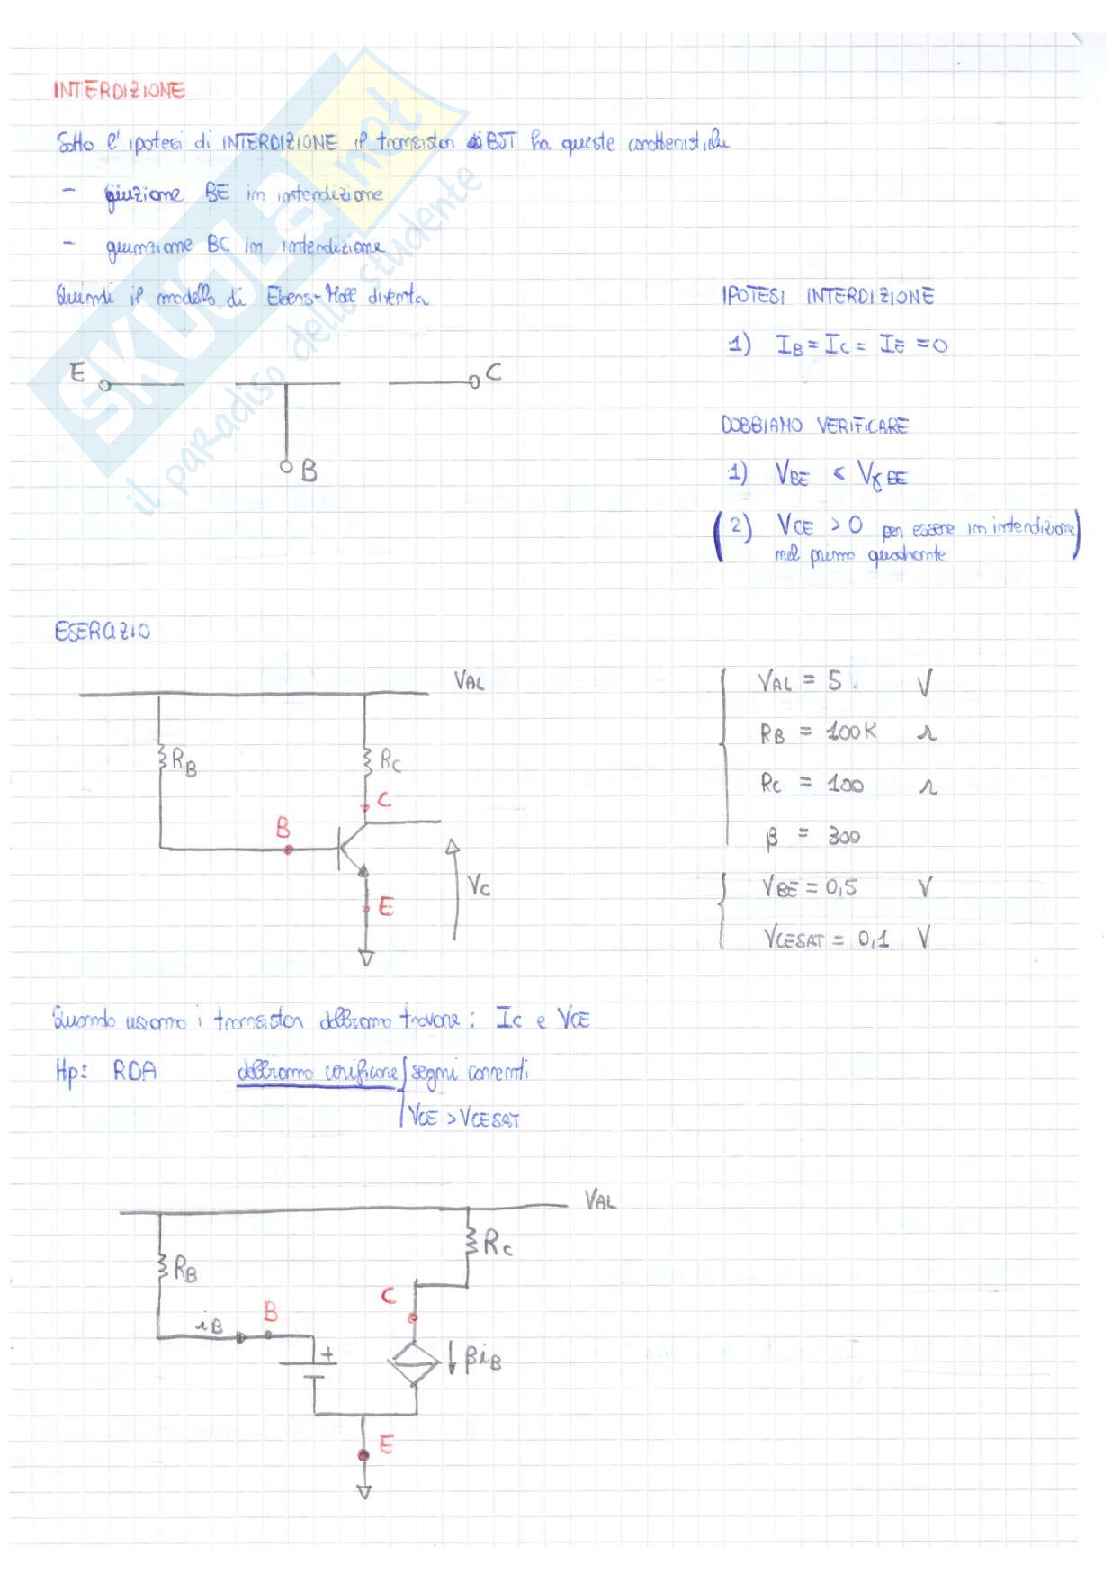 INTERDIZIONE
Sotto l'ipotesi di INTERDIZIONE il transistor BJT ha queste caratteristiche
- giuzione BE in interdizione
- giunzione BC in interdizione
Quindi il modello di Ebers-Moll diventa
IPOTESI INTERDIZIONE
1) IB = IC = IE = 0
E
C
B
DOBBIAMO VERIFICARE
1) VBE < VγBE
(2) VCE > 0 per essere in interdizione
nel primo quadrante)
ESERCIZIO
VAL
RB
RC
C
B
E
VC
VAL = 5 V
RB = 100K Ω
RC = 100 Ω
β = 300
VBE = 0,5 V
VCESAT = 0,1 V
Quando usiamo i transistor dobbiamo trovare: IC e VCE
Hp: RDA dobbiamo verificare { segni correnti
VCE > VCESAT
VAL
RC
RB
C
B
iB
+
βiB
E
SKUOLA.net
il paradiso dello studente